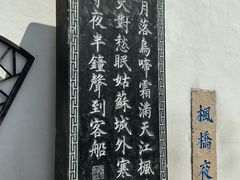 月落烏啼霜滿天江楓
火對愁眠姑蘇城外寒
夜半鐘聲到客船
楓橋夜